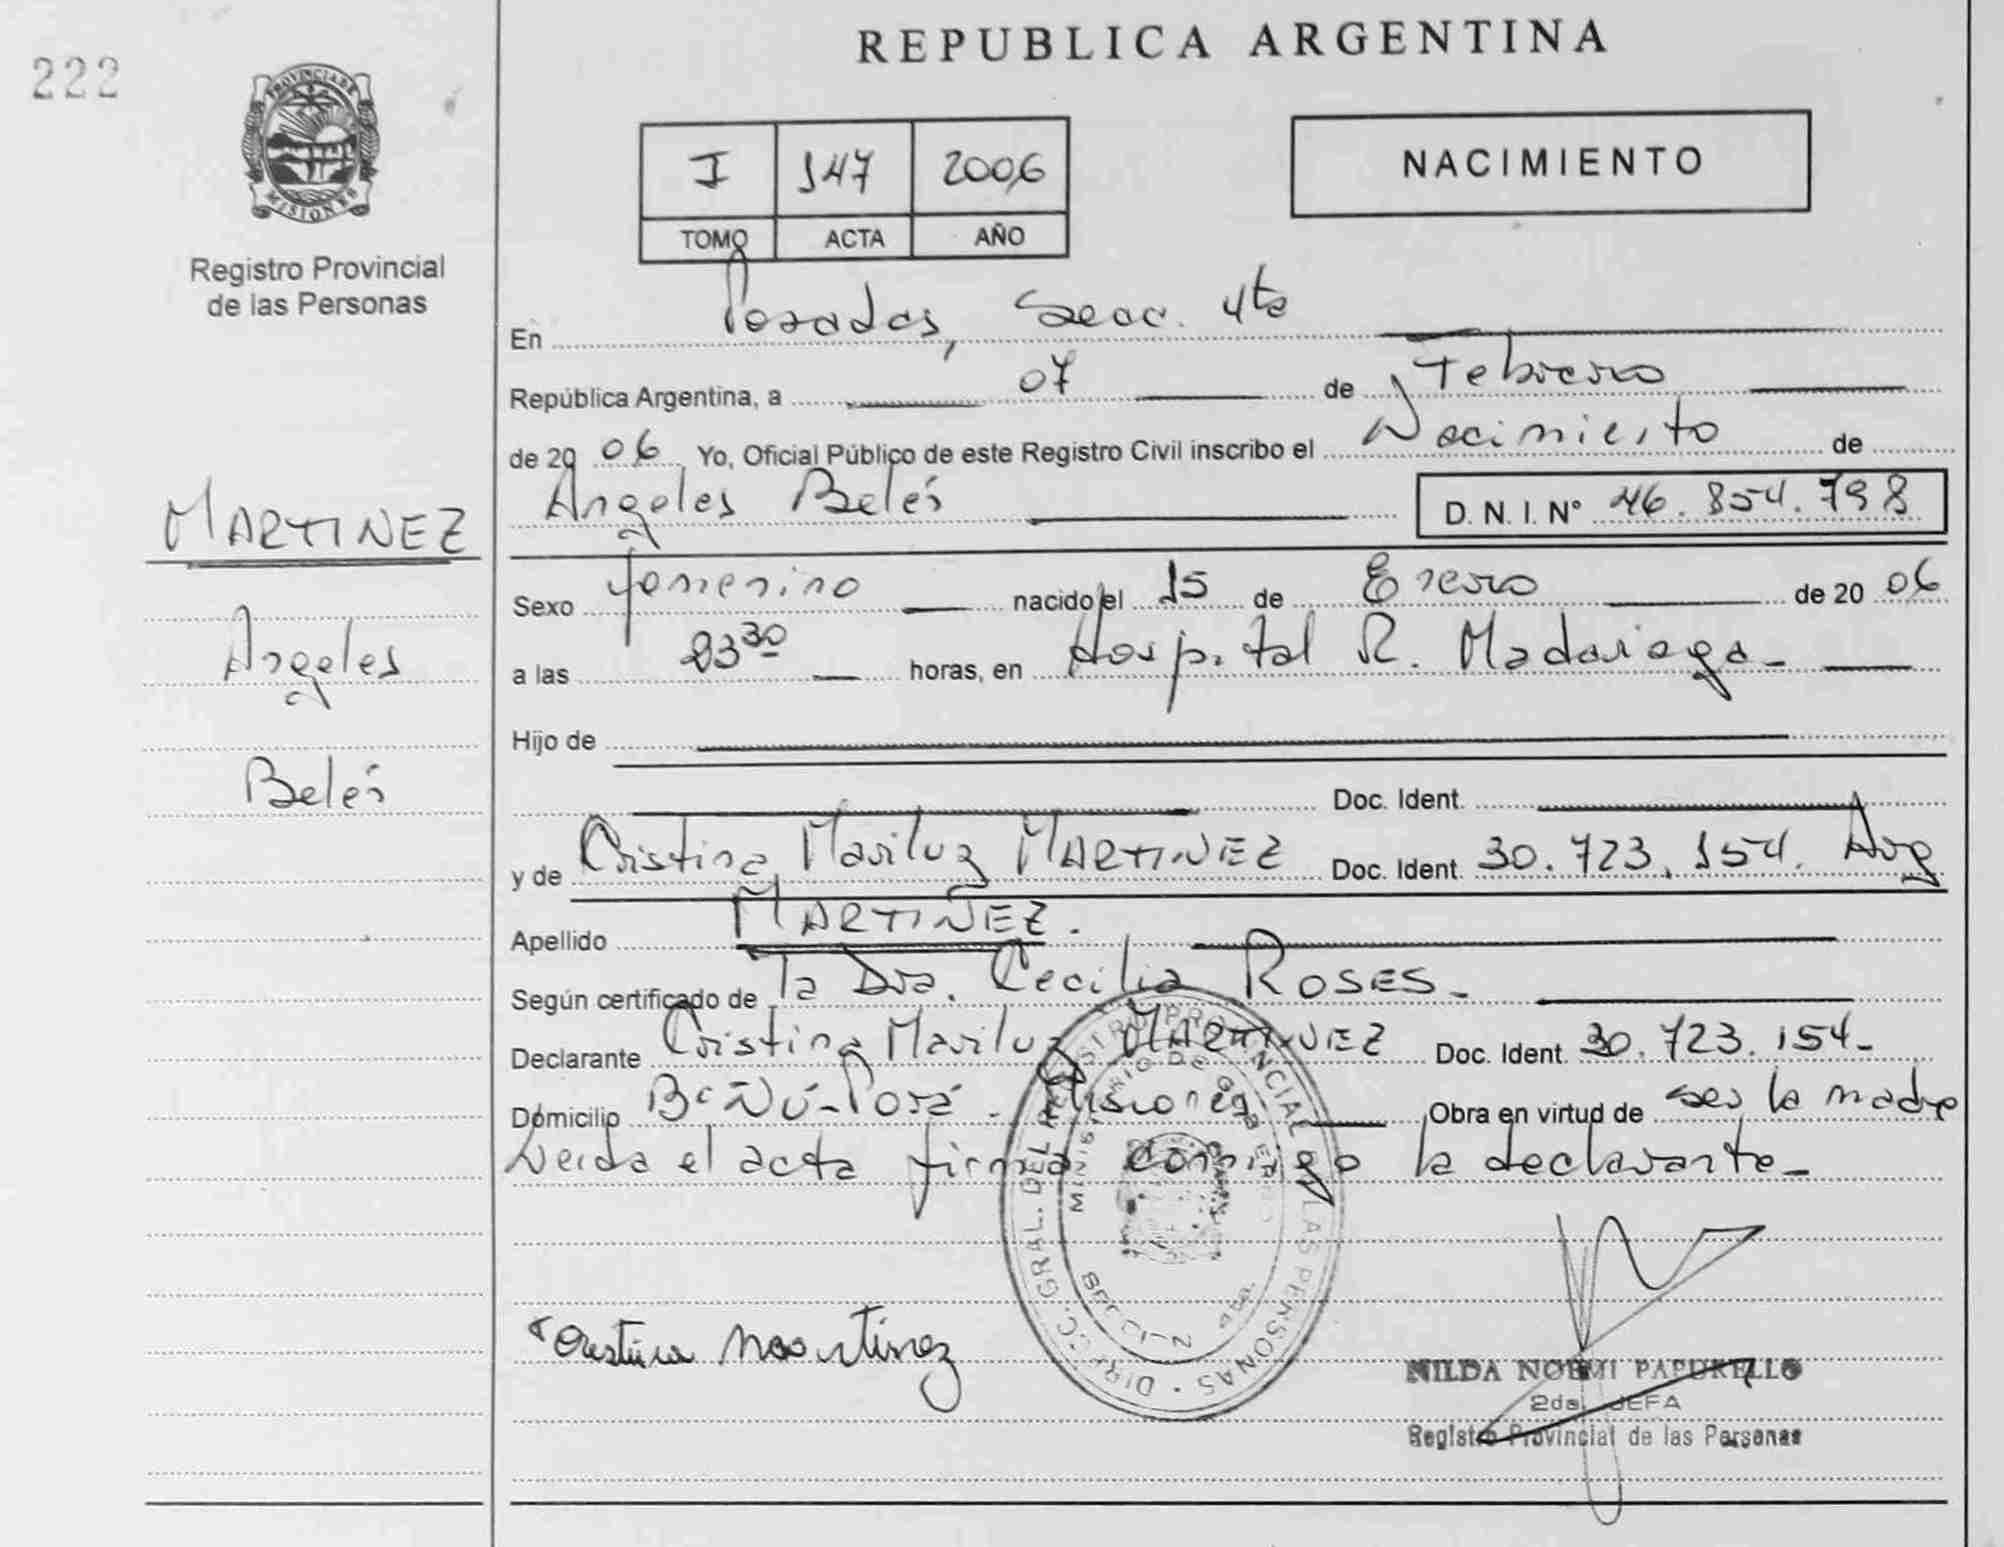 222
REPUBLICA ARGENTINA
PROVINCIA DE
MISIONES
Registro Provincial
de las Personas
I 147 2006
TOMO ACTA AÑO
NACIMIENTO
En Posadas, Secc. 4ta
República Argentina, a 07 de Febrero
de 2006 Yo, Oficial Público de este Registro Civil inscribo el Nacimiento de
Angeles Belén D. N. I. Nº 46.854.798
MARTINEZ
Angeles
Belén
Sexo femenino nacido el 15 de Enero de 2006
a las 23 30 horas, en Hospital R. Madariaga-
Hijo de
Doc. Ident.
y de Cristina Mariluz MARTINEZ Doc. Ident. 30.723.154. Arg
Apellido MARTINEZ.
Según certificado de la Dra. Cecilia ROSES-
Declarante Cristina Mariluz MARTINEZ Doc. Ident. 30.723.154-
Domicilio Bº Ñú-Porá - Misiones Obra en virtud de ser la madre
Leida el acta firma conmigo la declarante-
DIRECC. GRAL. DEL REGISTRO PROVINCIAL DE LAS PERSONAS
MINISTERIO DE GOBIERNO
Cristina Martinez
NILDA NOEMI
2da. JEFA
Registro Provincial de las Personas